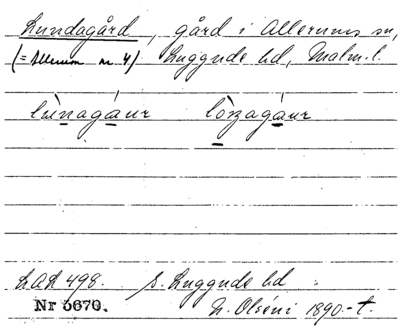 Lundagård, gård i Allerums sn,
(= Allerum nr. 4) Luggude hd, Malm. l.
lùnagáur lòzagáur
LAL 498. S. Luggude hd
Nr 5670. N. Olséni 1890.-t.